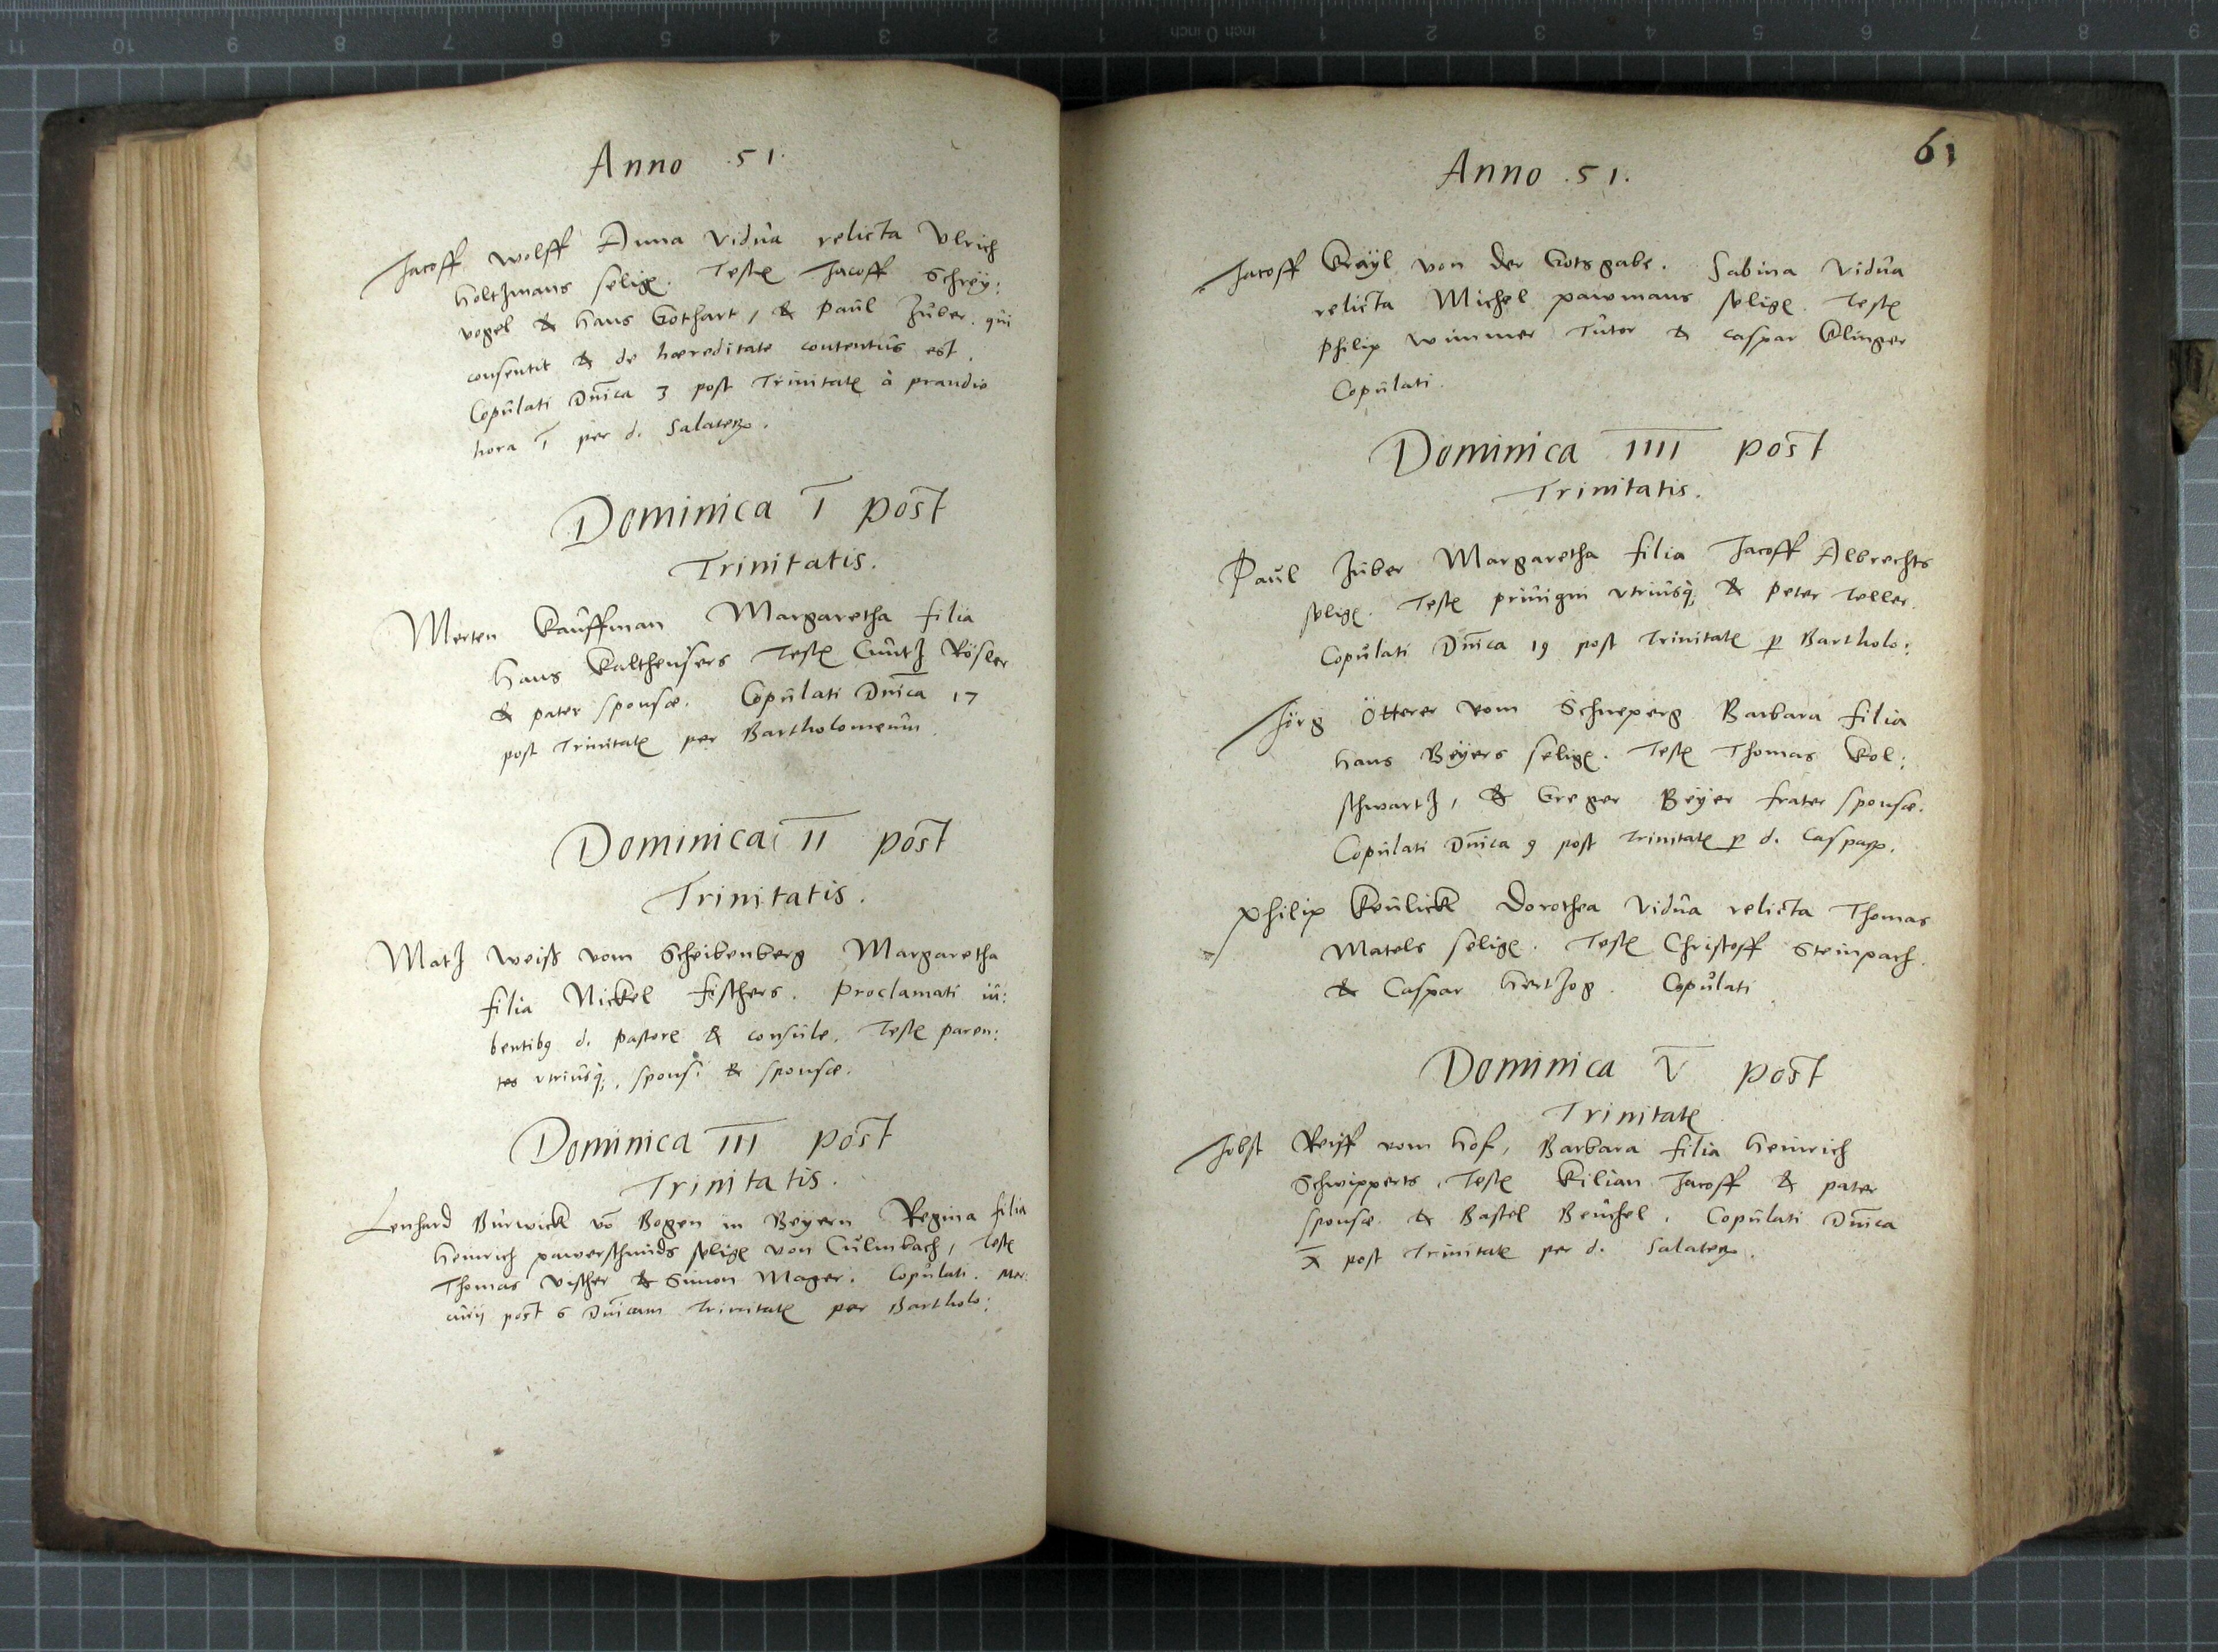 Anno .51.
Jacoff Wolff Anna Vidua relicta Ulrich
Holtzmans selig. Teste Jacoff Schrey:
vogel & Hans Gothart, & Paul Zuber. qui
consentit & de haereditate contentus est.
Copulati Dnica 3 post Trinitate à prandio
hora I per d. Salater.
Dominica I post
Trinitatis.
Merten Kauffman Margaretha filia
Hans Kaltheusers Teste Cuntz Rösler
& pater sponsae. Copulati Dnica 17
post Trinitate per Bartholomeum.
Dominica II post
Trinitatis.
Matz Weiss vom Scheibenberg Margaretha
filia Nickel Fischers. Proclamati iu:
bentibq d. Pastore & consule. Teste paren:
tes utriusq; sponsi & sponsae.
Dominica III post
Trinitatis.
Lenhard Burwick vō Bogen in Beyern Regina filia
Heinrich pawerschmids selige von Culmbach, Teste
Thomas Vischer & Simon Mager. Copulati. Mer:
curij post 6 Dnicam Trinitate per Bartholo:
61
Anno .51.
Jacoff Krayl von der Gotsgabe. Sabina Vidua
relicta Michel pawmans selige. Teste
Philip Wimmer Tutor & Caspar Klinger
Copulati.
Dominica IIII post
Trinitatis.
Paul Zuber Margaretha filia Jacoff Albrechts
selige. Teste privigni utriusq; & Peter Teller.
Copulati Dnica 19 post Trinitate p Bartholo:
Jörg Ötterer vom Schneperg Barbara filia
Hans Beyers selige. Teste Thomas Kol:
schwartz, & Greger Beyer frater sponsae.
Copulati Dnica 9 post Trinitate p d. Caspar.
Philip Keulickl Dorothea Vidua relicta Thomas
Matels selige. Teste Christoff Steinpach.
& Caspar Hertzog. Copulati
Dominica V post
Trinitate
Jobst Reiff vom Hof, Barbara filia Heinrich
Schwipperts, Teste Kilian Jacoff & pater
sponsae. & Bastel Beuchel. Copulati Dnica
X post Trinitate per d. Salater.